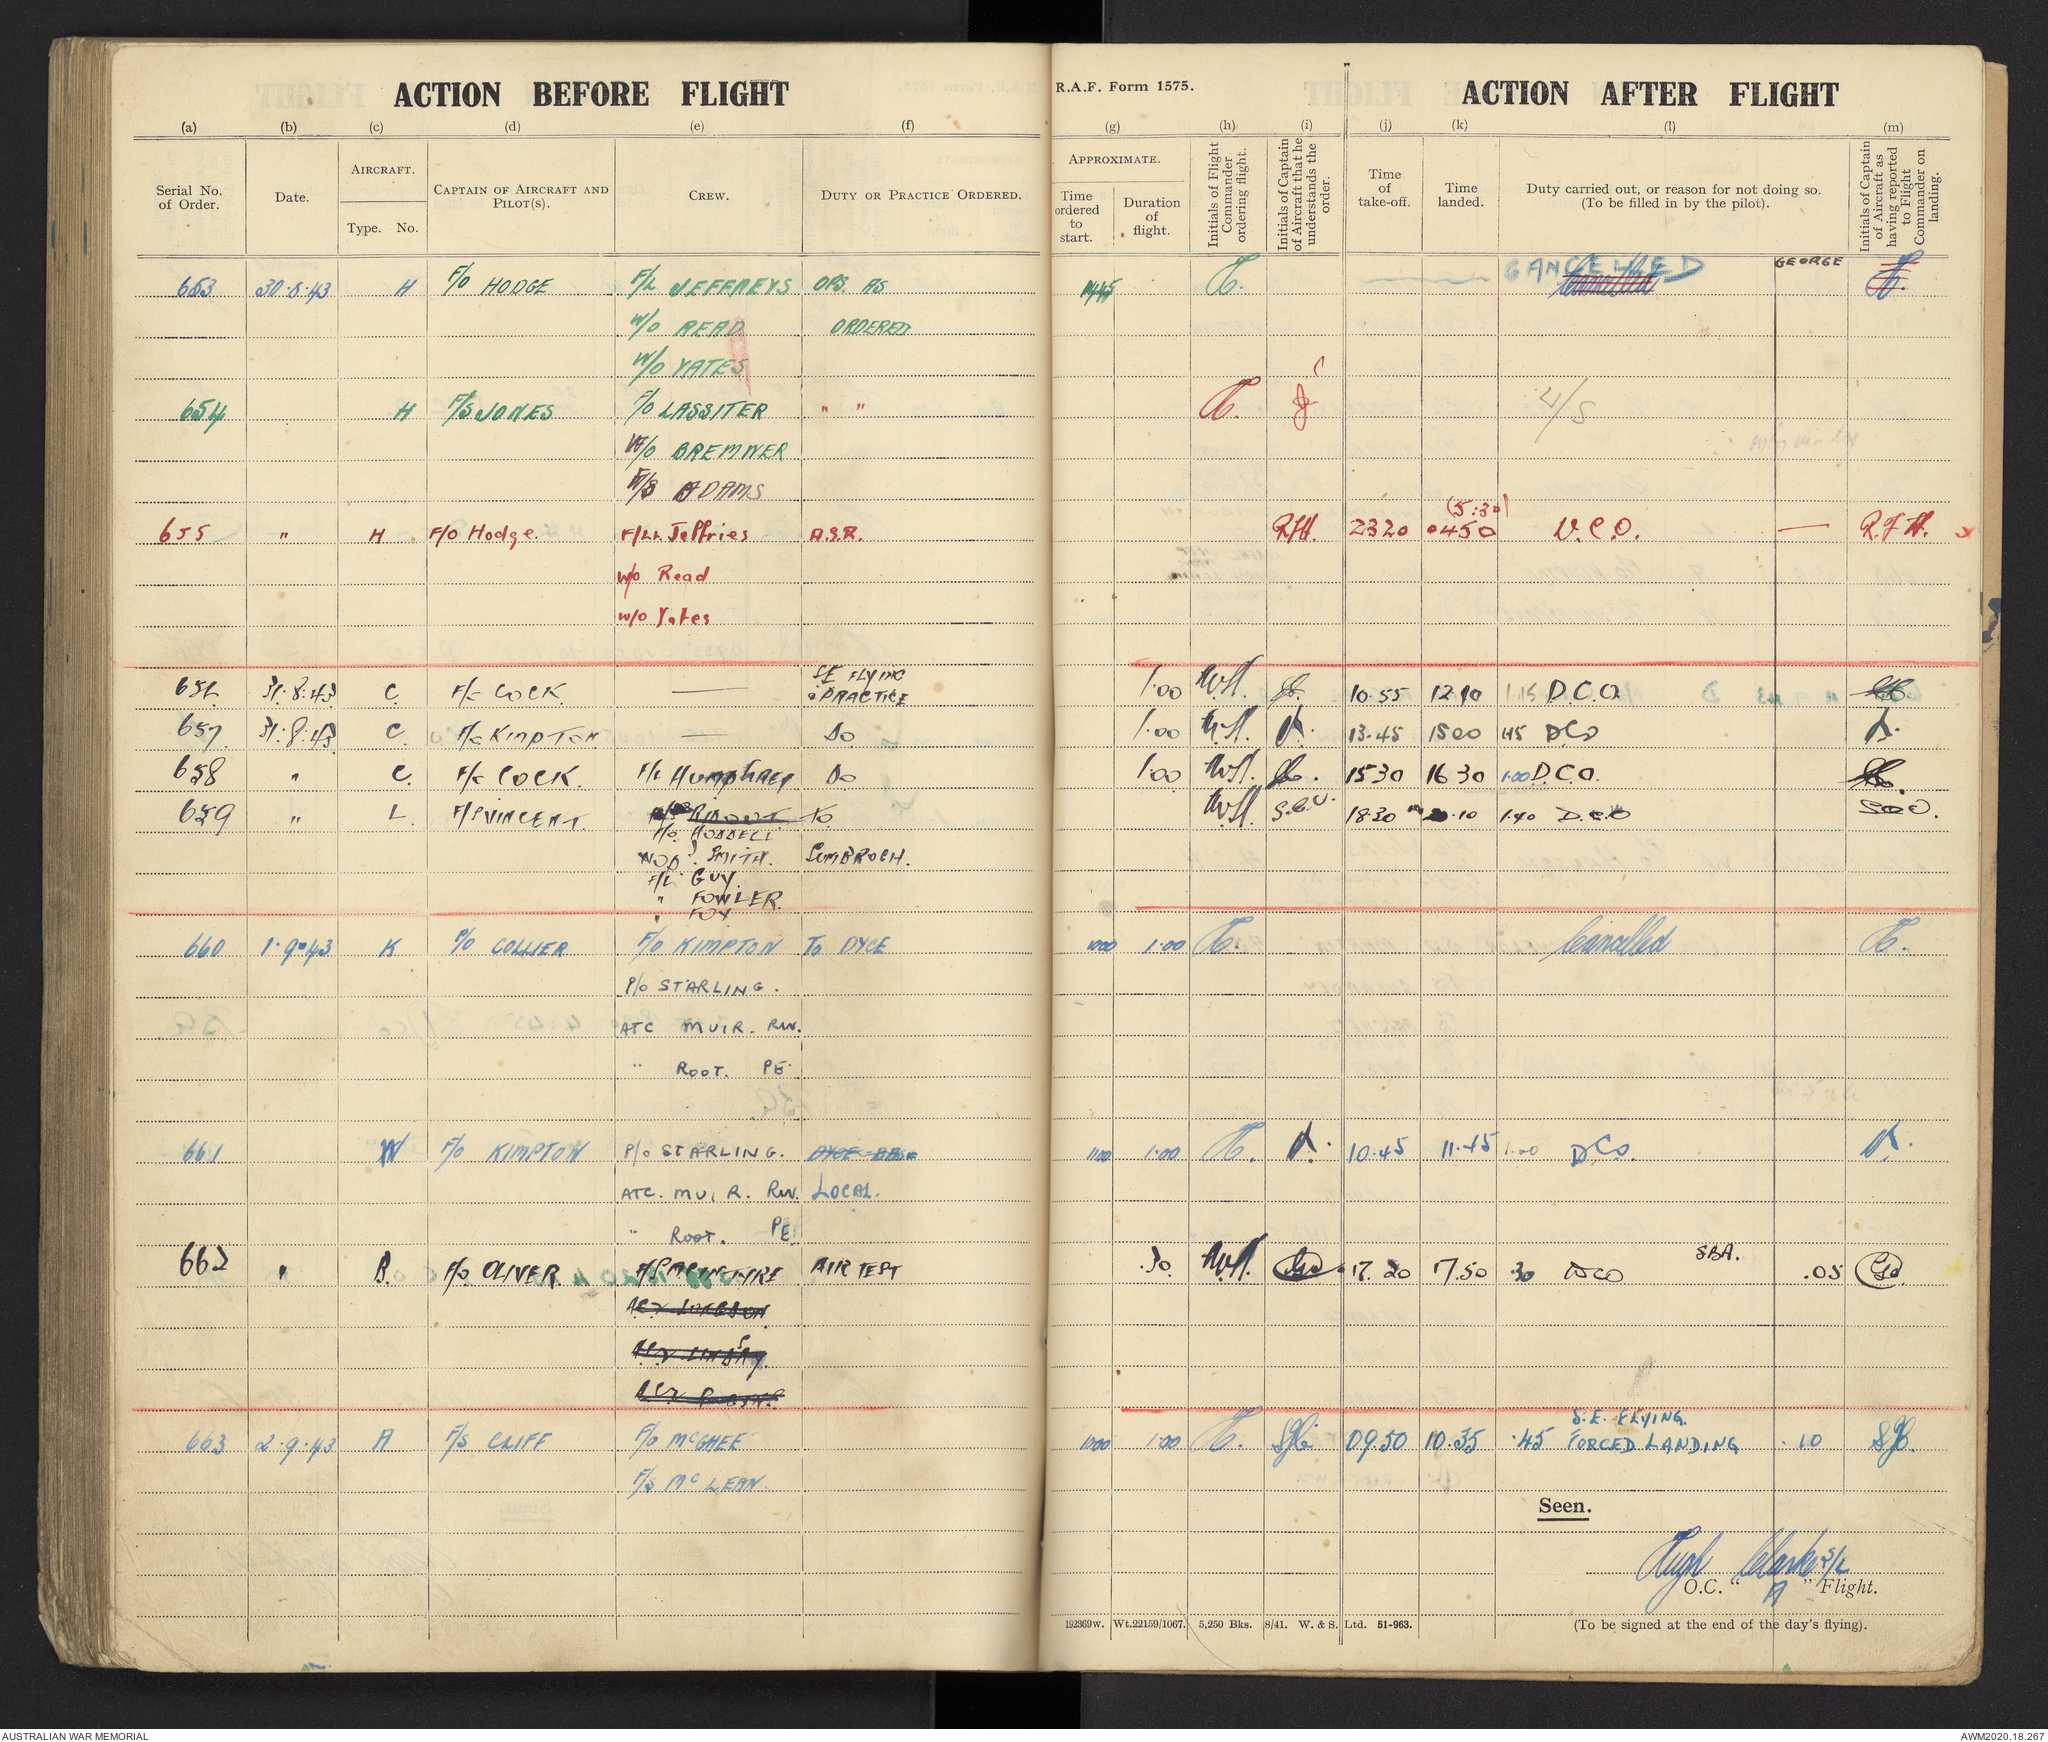 ACTION BEFORE FLIGHT
R.A.F. Form 1575.
ACTION AFTER FLIGHT
(a) (b) (c) (d) (e) (f) (g) (h) (i) (j) (k) (l) (m)
Serial No. of Order.
Date.
AIRCRAFT.
Type. No.
CAPTAIN OF AIRCRAFT AND PILOT(S).
CREW.
DUTY OR PRACTICE ORDERED.
APPROXIMATE.
Time ordered to start.
Duration of flight.
Initials of Flight Commander ordering flight.
Initials of Captain of Aircraft that he understands the order.
Time of take-off.
Time landed.
Duty carried out, or reason for not doing so.
(To be filled in by the pilot).
Initials of Captain of Aircraft as having reported to Flight Commander on landing.
653 30.8.43 H F/O HODGE F/L JEFFREYS OPS. AS CANCELLED Cancelled GEORGE
W/O READ ORDERED
W/O YATES
654 H F/S JONES F/O LASSITER " " U/S
W/O BREMNER
F/S ADAMS
(5:30)
655 " H F/O Hodge. F/Lt. Jeffries A.S.R. R.J.H. 2320 0450 D.C.O. — R.J.H.
W/O Read
W/O Yates
S.E FLYING
656 31.8.43 C. F/S COCK — PRACTICE 1.00 10.55 12.10 1.15 D.C.O.
657 31.8.43 C. F/O KIMPTON — Do 1.00 13.45 1500 1.15 DCO
658 " C. F/S COCK. F/L HUMPHREY Do 1.00 1530 1630 1.00 D.C.O.
659 " L. F/S VINCENT. RIDOUT To S.C.V. 18.30 20.10 1.40 D.C.O
F/O. HODDELL
SMITH. SUMBROCH.
F/L. GUY.
" FOWLER.
" FOX
660 1.9.43 K P/O COLLIER F/O KIMPTON TO DYCE 1000 1.00 Cancelled
P/O STARLING.
ATC MUIR. RW.
" ROOT. PE
661 W F/O KIMPTON P/O STARLING. 1100 1.00 10.45 11.45 1.00 DCO.
ATC. MUIR. RW. LOCAL.
" ROOT. PE
662 " B. F/O. OLIVER. F/S MCINTYRE AIR TEST .30 17.20 17.50 .30 DCO SBA. .05
S.E. FLYING.
663 2.9.43 A F/S CLIFF F/O McGHEE 1000 1.00 09.50 10.35 .45 FORCED LANDING .10
F/S McLEAN
Seen.
Hugh Clarke S/L
O.C. " A " Flight.
192369w. Wt.22159/1067. 5,250 Bks. 8/41. W. & S. Ltd. 51-963.
(To be signed at the end of the day's flying).
AUSTRALIAN WAR MEMORIAL
AWM2020.18.267